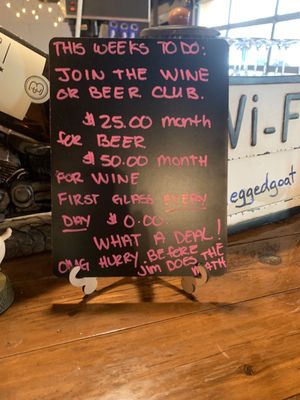 THIS WEEKS TO DO:
JOIN THE WINE
OR BEER CLUB.
$25.00 month
for BEER
$50.00 month
FOR WINE
FIRST GLASS EVERY
DAY $0.00.
WHAT A DEAL!
OMG HURRY. BEFORE THE
Jim DOES MATH
Wi-F
eggedgoat